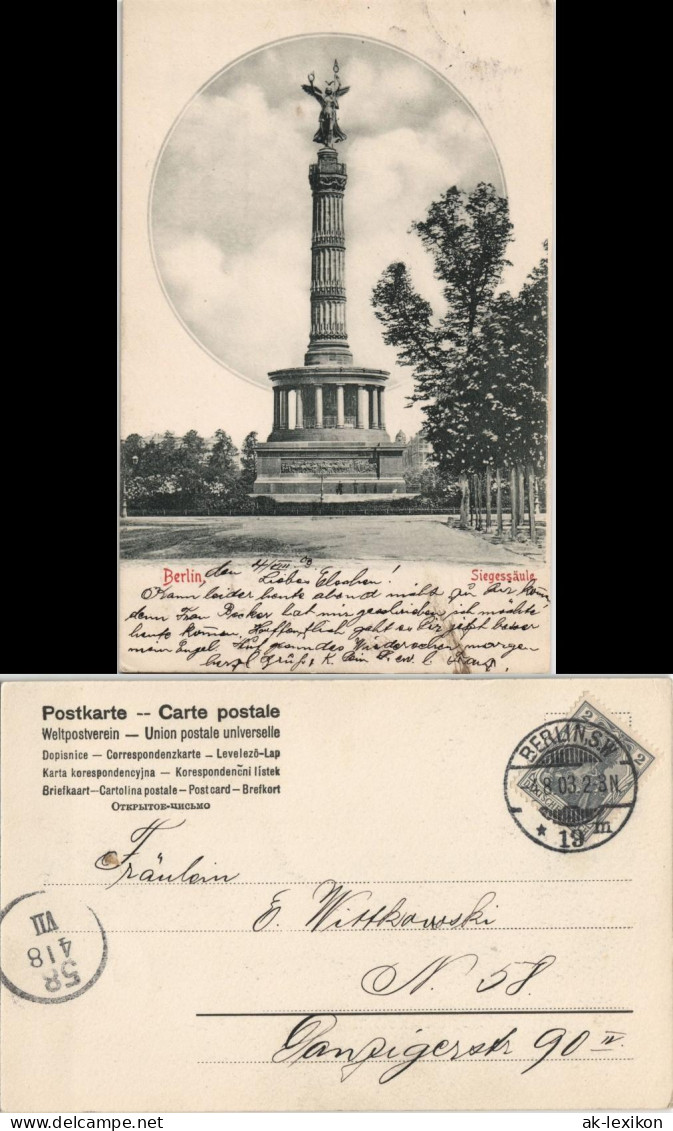 Berlin, den 4/VIII 03 Siegessäule
Liebes Elschen!
Kann leider heute abend nicht zu dir kom
denn Frau Becker hat mir geschrieben, ich möchte
heute kommen, Hoffentlich geht es Dir jetzt besser
mein Engel. Auf Wiedersehen morgen
herzl Gruß
Postkarte -- Carte postale
Weltpostverein — Union postale universelle
Dopisnice — Correspondenzkarte — Levelezö-Lap
Karta korespondencyjna — Korespondenční lístek
Briefkaart—Cartolina postale—Post card—Brefkort
Открытое-цисьмо
BERLIN.S.W.
4.8.03.2-3N.
* 19 m
2 2
Fräulein
E. Wittkowski
N. 58.
Danzigerstr 90 IV
58
418
VII
Delcampe.net
ak-lexikon